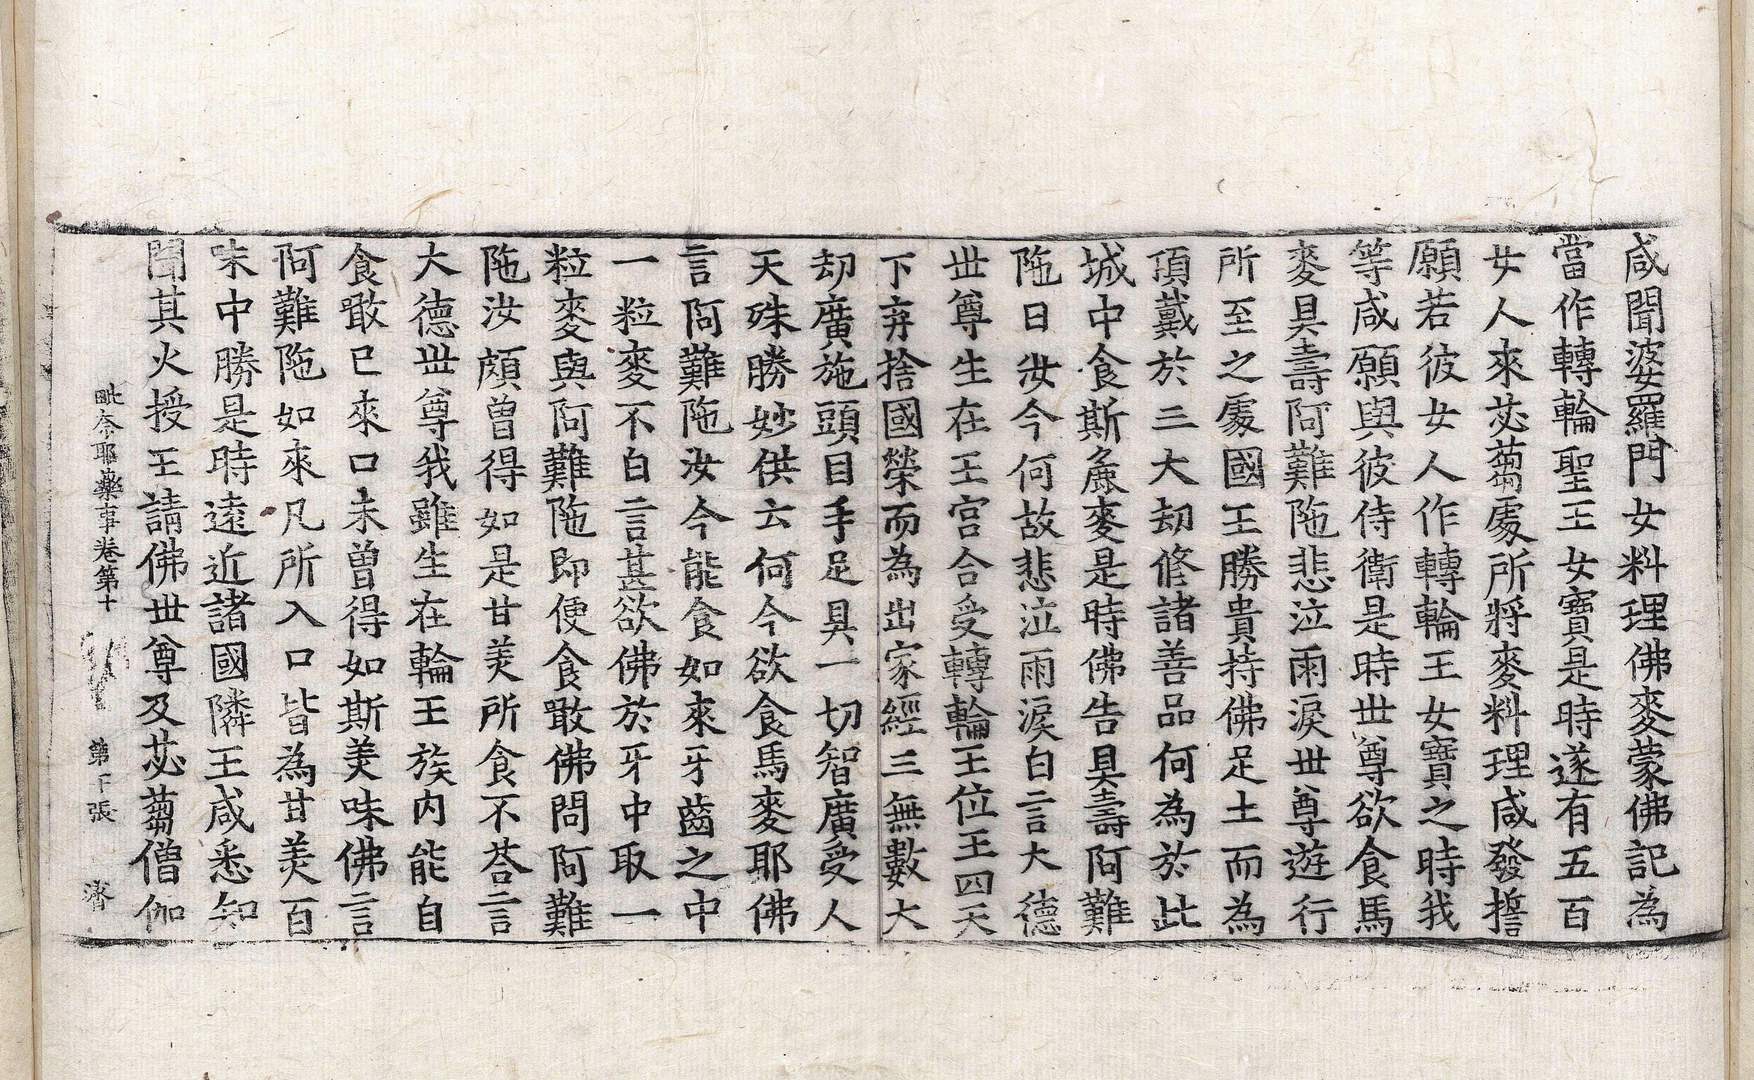 咸聞婆羅門女料理佛麥蒙佛記為
當作轉輪聖王女寶是時遂有五百
女人來苾蒭處所將麥料理咸發誓
願若彼女人作轉輪王女寶之時我
等咸願與彼侍衛是時世尊欲食馬
麥具壽阿難陁悲泣雨淚世尊遊行
所至之處國王勝貴持佛足土而為
頂戴於三大刼修諸善品何為於此
城中食斯麁麥是時佛告具壽阿難
陁曰汝今何故悲泣雨淚白言大德
世尊生在王宮合受轉輪王位王四天
下弃捨國榮而為出家經三無數大
刼廣施頭目手足具一切智廣受人
天殊勝妙供云何今欲食馬麥耶佛
言阿難陁汝今能食如來牙齒之中
一粒麥不白言甚欲佛於牙中取一
粒麥與阿難陁即便食噉佛問阿難
陁汝頗曾得如是甘美所食不荅言
大德世尊我雖生在輪王族內能自
食噉已來口未曾得如斯美味佛言
阿難陁如來凡所入口皆為甘美百
味中勝是時遠近諸國隣王咸悉知
聞其火授王請佛世尊及苾蒭僧伽
毗奈耶藥事卷第十 第丁張 濟